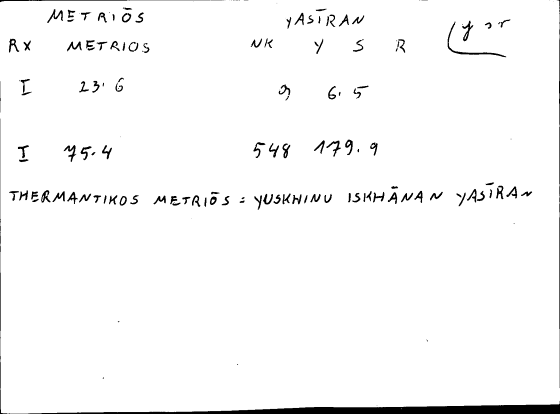 METRIŌS YASĪRAN
RX METRIOS NK Y S R ysr
I 23.6 9 6.5
I 75.4 548 179.9
THERMANTIKOS METRIŌS = YUSKHINU ISKHĀNAN YASĪRAN